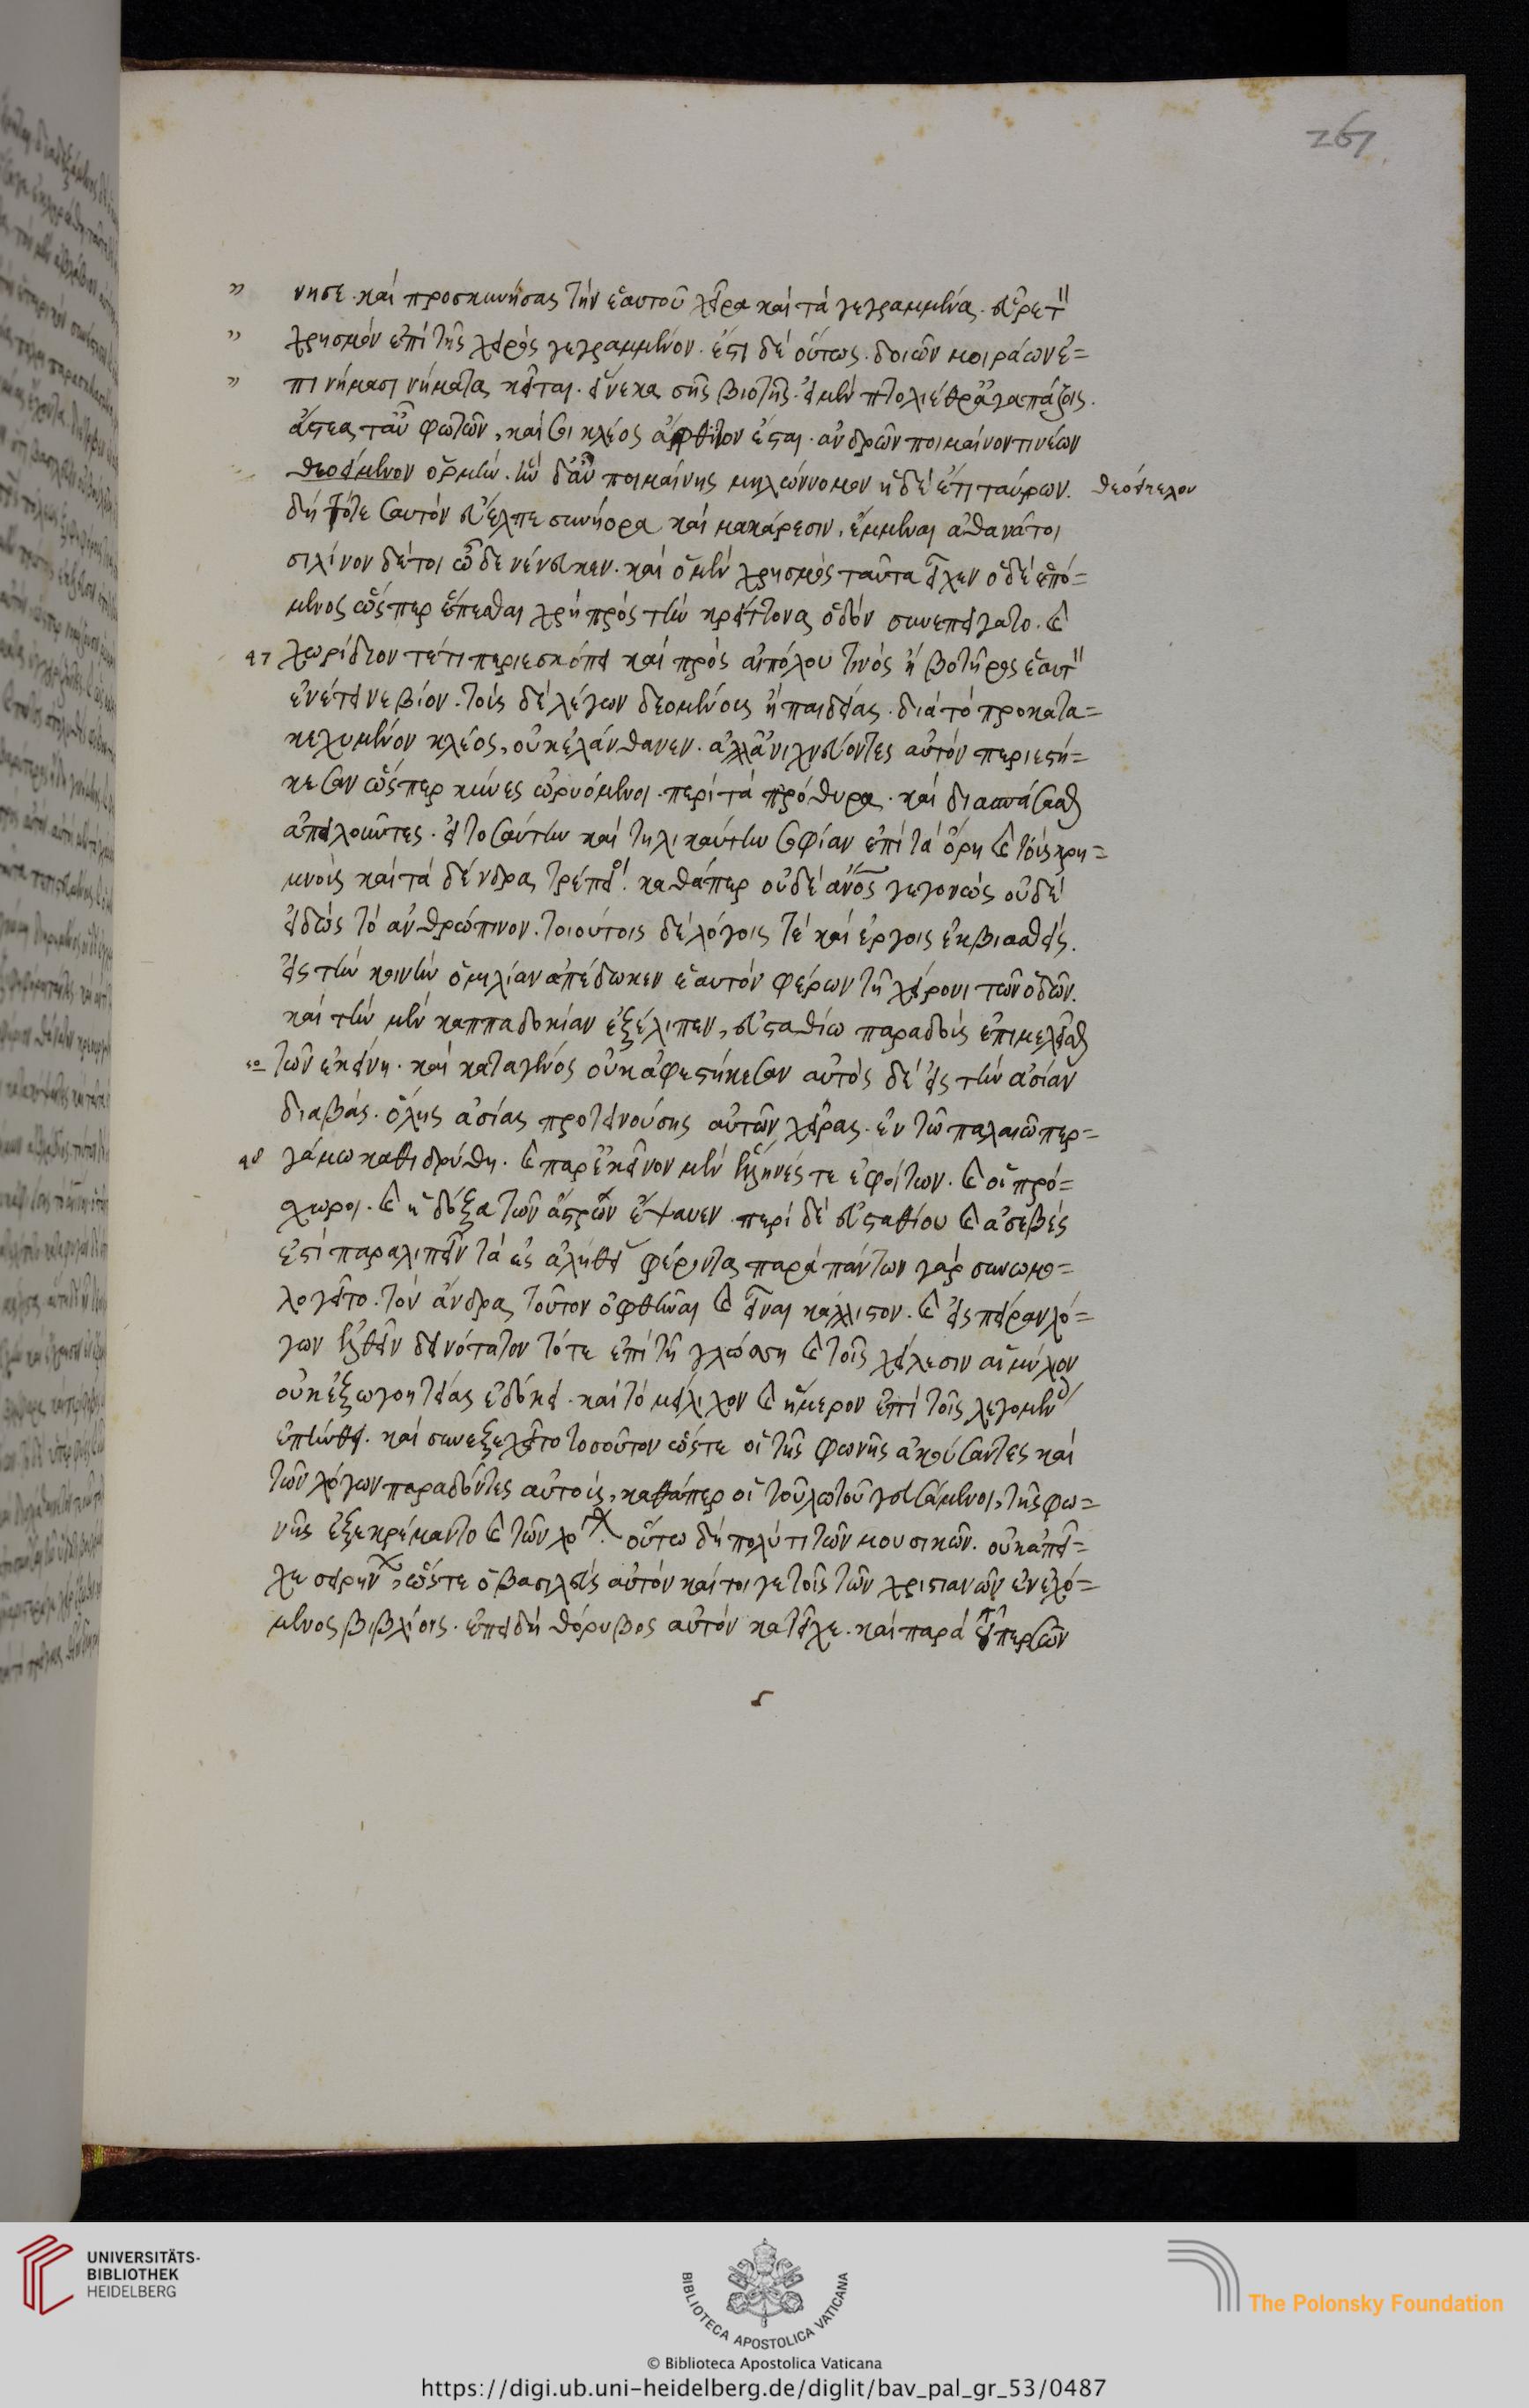 267
νησε· καὶ προσκυνήσας τὴν ἑαυτοῦ χεῖρα καὶ τὰ γεγραμμένα. εὗρε τ
χρησμὸν ἐπὶ τῆς χειρὸς γεγραμμένον. ἔστι δὲ οὕτως. δοιῶν μοιράων ἐ=
πὶ νήμασι νήματα κεῖται. εἵνεκα σῆς βιοτῆς. εἰ μὲν πτολίεθρ' ἀγαπάζοις.
ἄστεα τ' αὖ φωτῶν, καί σοι κλέος ἄφθιτον ἔσται. ἀνδρῶν ποιμαίνοντι νέων
θεοείμενον ὁρμήν. ἢν δ' αὖ ποιμαίνης μήλων νομὸν ἠδέ ἔτι ταύρων. θεοείκελον
δή τότε σαυτὸν ἔελπε συνήορα καὶ μακάρεσιν, ἔμμεναι ἀθανάτοι
σι λίνον δέ τοι ὧδε νένευκεν. καὶ ὁ μὲν χρησμὸς ταῦτα εἶχεν ὁ δὲ ἑπό=
μενος ὥσπερ ἕπεσθαι χρὴ πρὸς τὴν κρείττονα ὁδὸν συνεπείγετο. καὶ
47 χωρίδιόν τέ τι περιεσκόπει καὶ πρὸς αἰπόλου τινός ἢ βοτῆρος ἑαυτ
ἐνέτεινε βίον. τοὺς δὲ λόγων δεομένους ἢ παιδείας. διὰ τὸ προκατα=
κεχυμένον κλέος, οὐκ ἐλάνθανεν. ἀλλ' ἀνιχνεύοντες αὐτὸν περιεστή=
κεσαν ὥσπερ κύνες ὠρυόμενοι περὶ τὰ πρόθυρα. καὶ διασπάσασθαι
ἀπειλοῦντες. εἰ τοσαύτην καὶ τηλικαύτην σοφίαν ἐπὶ τὰ ὄρη καὶ τοὺς κρη=
μνοὺς καὶ τὰ δένδρα τρέποι. καθάπερ οὐδὲ ἄνος γεγονὼς οὐδὲ
εἰδὼς τὸ ἀνθρώπινον. τοιούτοις δὲ λόγοις τὲ καὶ ἔργοις ἐκβιασθείς.
εἰς τὴν κοινὴν ὁμιλίαν ἀπέδωκεν ἑαυτὸν φέρων τῇ χείρονι τῶν ὁδῶν.
καὶ τὴν μὲν καππαδοκίαν ἐξέλιπεν, εὐσταθίω παραδοὺς ἐπιμελεῖσθαι
τῶν ἐκείνη. καὶ κατὰ γένος οὐκ ἀφεστήκεσαν αὐτὸς δὲ εἰς τὴν ἀσίαν
διαβάς. ὅλης ἀσίας προτεινούσης αὐτῶν χεῖρας. ἐν τῷ παλαιῷ περ=
48 γάμω καθιδρύθη. καὶ παρ' ἐκεῖνον μὲν ἕλληνές τε ἐφοίτων. καὶ οἱ πρό=
χωροι. καὶ ἡ δόξα τῶν ἄστρων ἔψαυεν. περὶ δὲ εὐσταθίου καὶ ἀσεβές
ἐστὶ παραλιπεῖν τὰ ἐς ἀλήθει φέροντα παρὰ πάντων γὰρ συνωμο=
λογεῖτο. τὸν ἄνδρα τοῦτον ὀφθῆναι καὶ εἶναι κάλλιστον. καὶ εἰς πεῖραν λό=
γων ἐλθεῖν δεινότατον τό τε ἐπὶ τῇ γλώσσῃ καὶ τοῖς χείλεσιν αἱμύλον
οὐκ ἔξω γοητείας ἐδόκει. καὶ τὸ μείλιχον καὶ ἥμερον ἐπὶ τοῖς λεγομέν
ἐπήνθει. καὶ συνεξεχεῖτο τοσοῦτον ὥστε οἱ τῆς φωνῆς ἀκούσαντες καὶ
τῶν λόγων παραδόντες αὐτούς, καθάπερ οἱ τοῦ λωτοῦ γευσάμενοι, τῆς φω=
νῆς ἐξεκρέμαντο καὶ τῶν λό. οὕτω δὴ πολύ τι τῶν μουσικῶν. οὐκ ἀπεῖ=
χε σειρην, ὥστε ὁ βασιλεὺς αὐτὸν καίτοι γε τοῖς τῶν χριστιανῶν ἐνεχό=
μενος βιβλίοις. ἐπειδὴ θόρυβος αὐτὸν κατεῖχε. καὶ παρὰ τῶν περσῶν
UNIVERSITÄTS-
BIBLIOTHEK
HEIDELBERG
BIBLIOTECA APOSTOLICA VATICANA
The Polonsky Foundation
© Biblioteca Apostolica Vaticana
https://digi.ub.uni-heidelberg.de/diglit/bav_pal_gr_53/0487